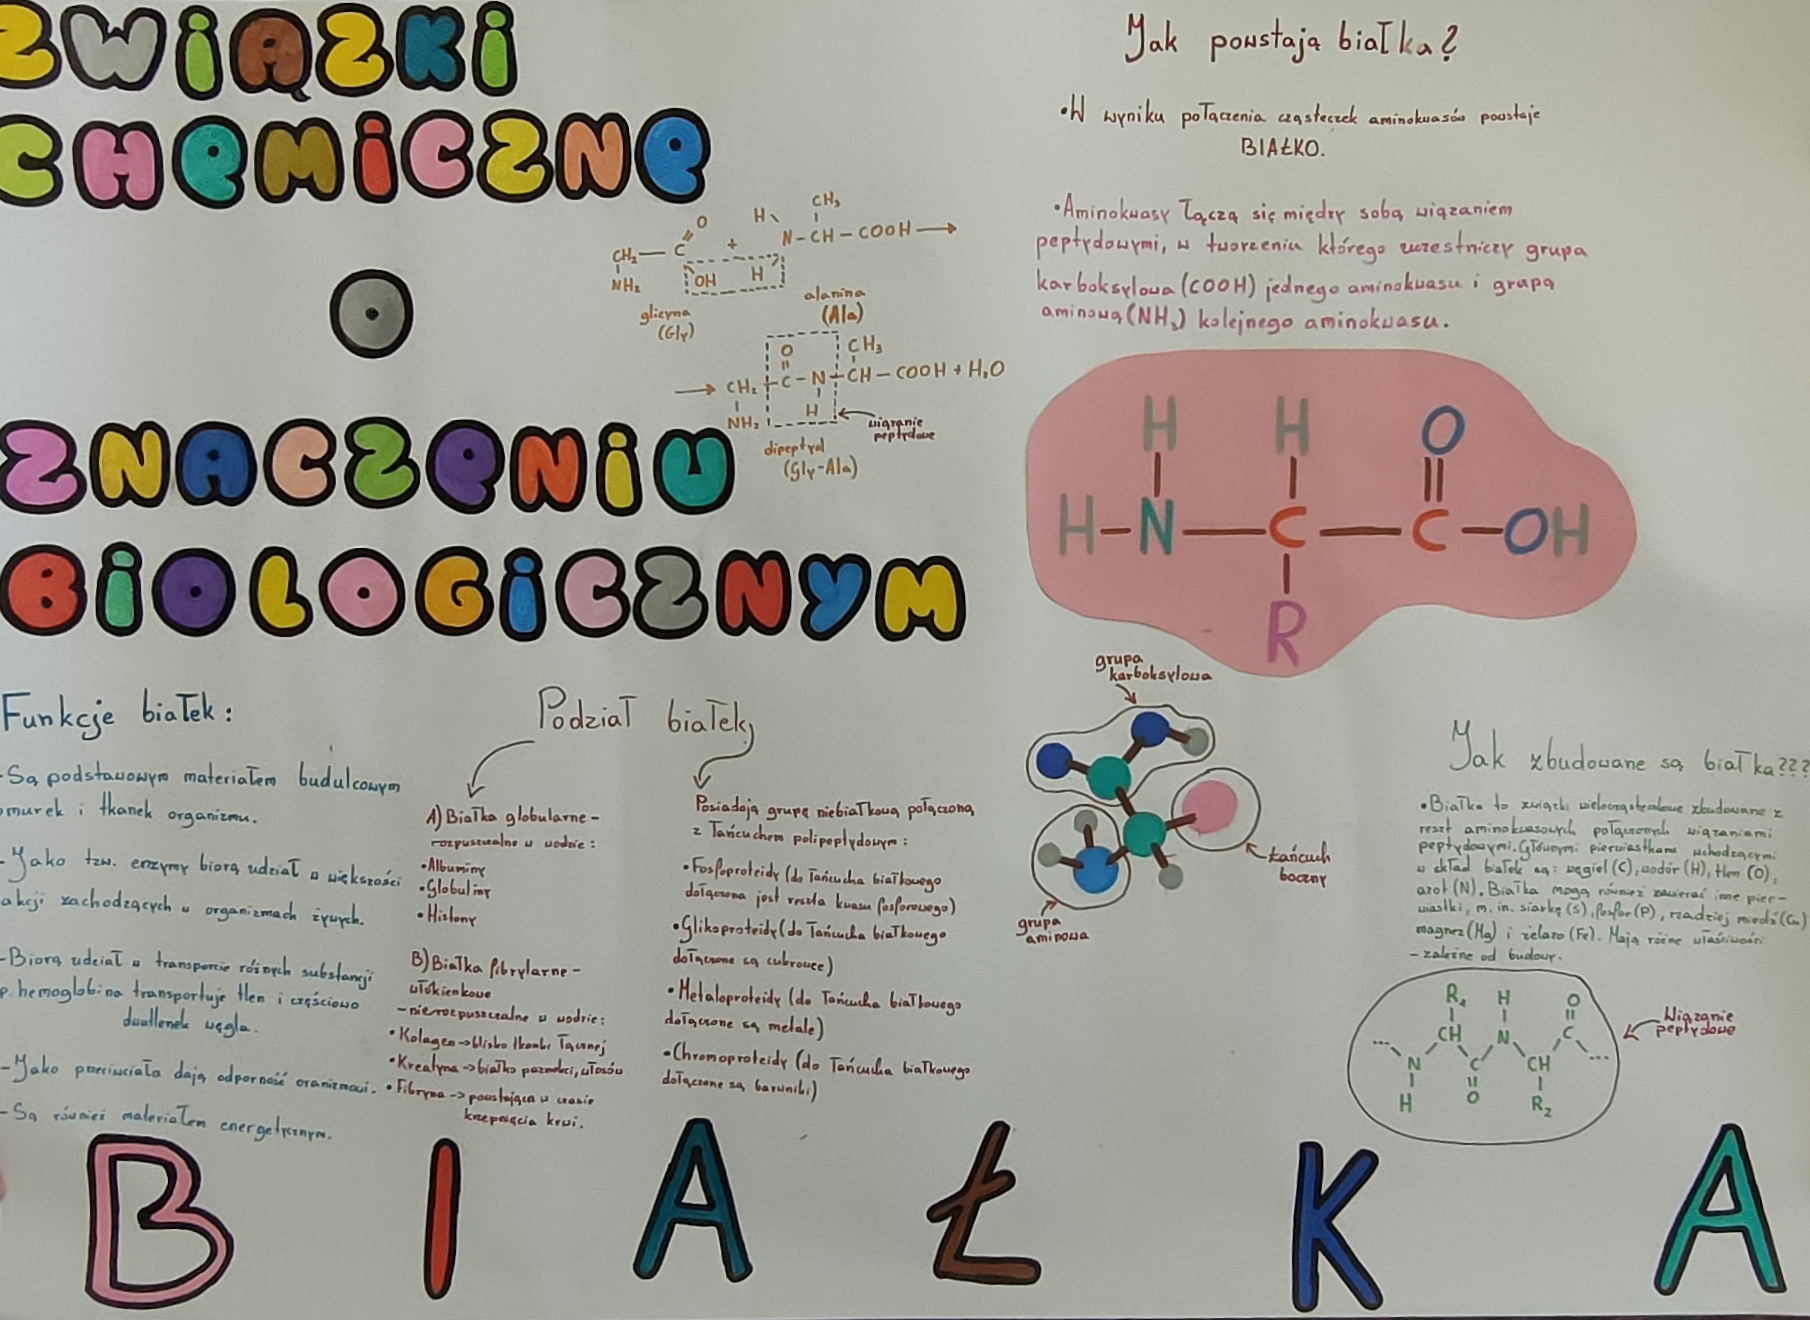 ZWIĄZKI
CHEMICZNE
O
ZNACZENIU
BIOLOGICZNYM
CH₂ — C
O
+
H
N - CH - COOH →
CH₃
NH₂
OH
H
glicyna
(Gly)
alanina
(Ala)
→ CH₂ - C - N - CH - COOH + H₂O
O
CH₃
NH₂
H
wiązanie
peptydowe
dipeptyd
(Gly-Ala)
Jak powstają białka?
• W wyniku połączenia cząsteczek aminokwasów powstaje
BIAŁKO.
• Aminokwasy łączą się między sobą wiązaniem
peptydowymi, w tworzeniu którego uczestniczy grupa
karboksylowa (COOH) jednego aminokwasu i grupą
aminową (NH₂) kolejnego aminokwasu.
H H O
H - N — C — C - OH
R
grupa
karboksylowa
łańcuch
boczny
grupa
aminowa
Funkcje białek:
- Są podstawowym materiałem budulcowym
omurek i tkanek organizmu.
- Jako tzw. enzymy biorą udział w większości
akcji zachodzących w organizmach żywych.
- Biorą udział w transporcie różnych substancji
p. hemoglobina transportuje tlen i częściowo
dwutlenek węgla.
- Jako przeciwciała dają odporność oranizmowi.
- Są również materiałem energetycznym.
Podział białek
A) Białka globularne -
rozpuszczalne w wodzie:
• Albuminy
• Globuliny
• Histony
B) Białka fibrylarne -
włókienkowe
- nierozpuszczalne w wodzie:
• Kolagen → białko tkanki łącznej
• Kreatyna → białko paznokci, włosów
• Fibryna → powstająca w czasie
krzepnięcia krwi.
Posiadają grupę niebiałkową połączoną
z łańcuchem polipeptydowym:
• Fosfoproteidy (do łańcucha białkowego
dołączona jest reszta kwasu fosforowego)
• Glikoproteidy (do łańcucha białkowego
dołączone są cukrowce)
• Metaloproteidy (do łańcucha białkowego
dołączone są metale)
• Chromoproteidy (do łańcucha białkowego
dołączone są barwniki)
Jak zbudowane są białka???
• Białka to związki wielocząsteczkowe zbudowane z
reszt aminokwasowych połączonych wiązaniami
peptydowymi. Głównymi pierwiastkami wchodzącymi
w skład białek są: węgiel (C), wodór (H), tlen (O),
azot (N). Białka mogą również zawierać inne pier-
wiastki, m. in. siarkę (S), fosfor (P), rzadziej miedź (Cu)
magnez (Mg) i żelazo (Fe). Mają różne właściwości
- zależne od budowy.
R₁ H O
CH N C
N C CH
H O R₂
Wiązanie
peptydowe
BIAŁKA